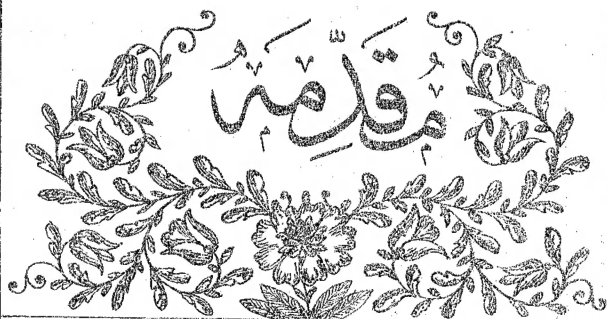 مُقَدِّمَہ